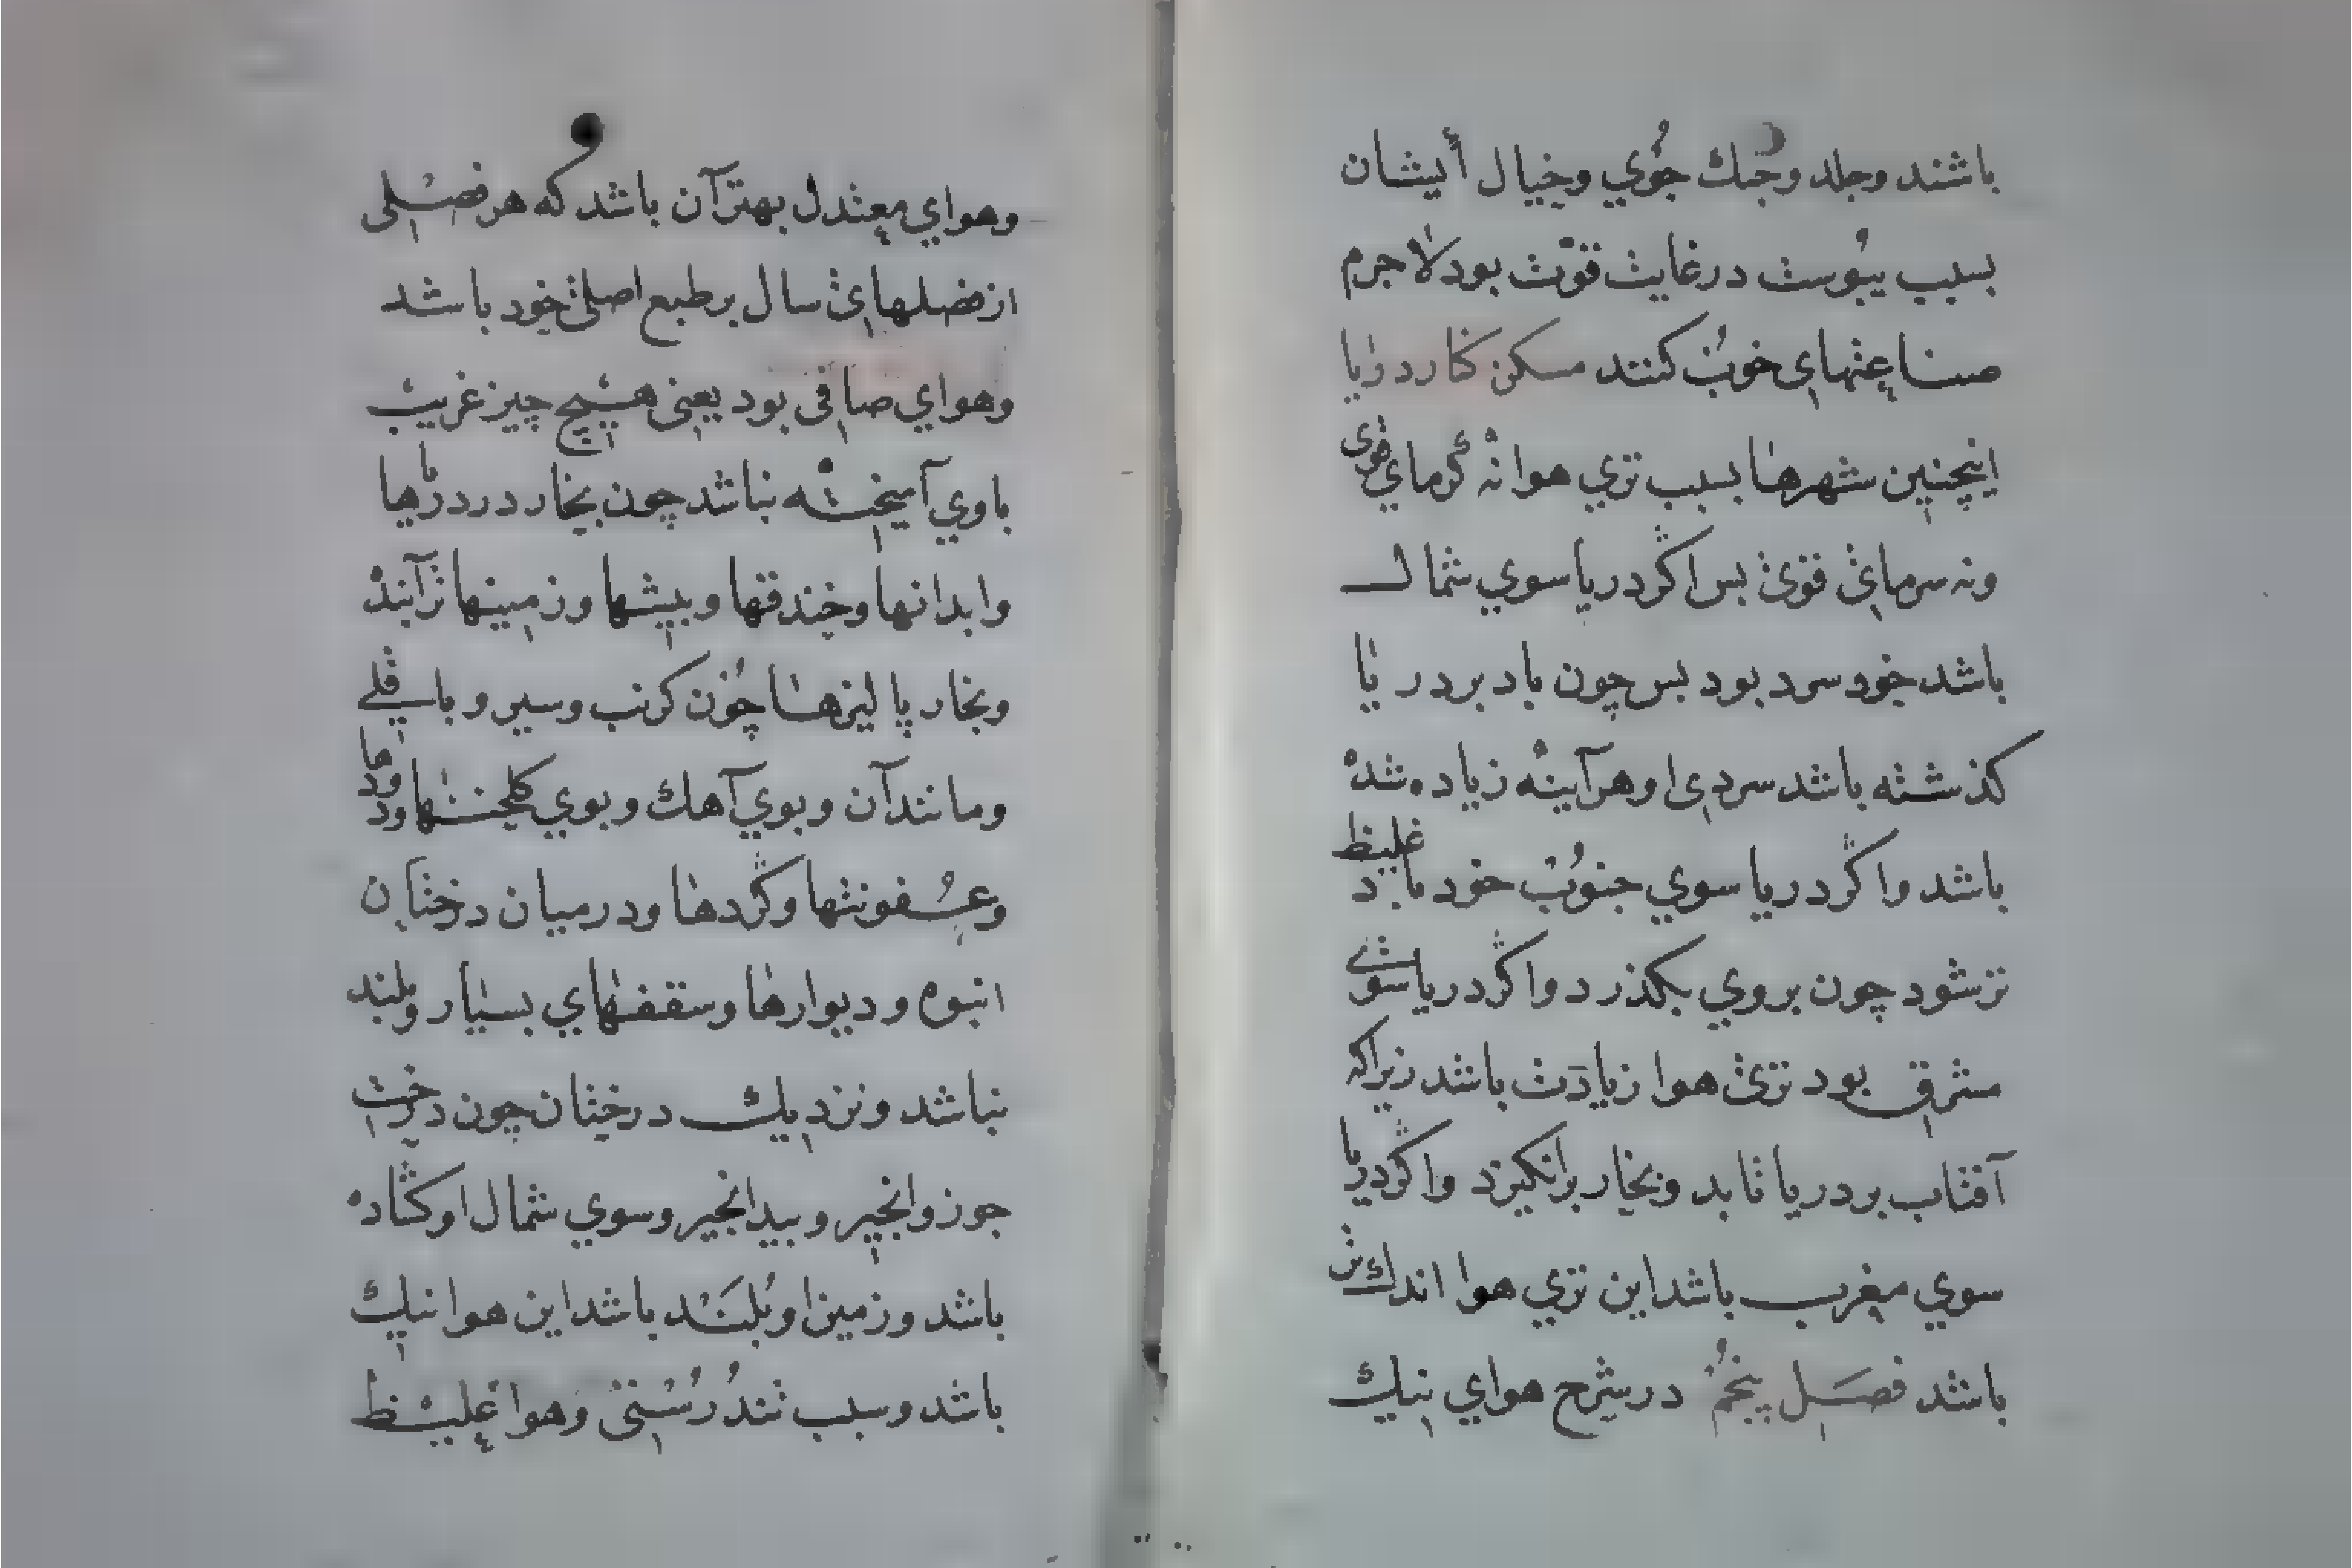 باشند وجلد وجنك جُوي وخيال أيشان
بسبب يبُوست درغايت قوّت بود لاجرم
صناعتهاي خوب كنند مسكن كنار دريا
اينچنين شهرها بسبب تري هوا نه گرماي قوي
ونه سرماي قوي بس اگر دريا سوي شمال
باشد خود سرد بود بس چون باد بر دريا
كذشته باشد سردي او هرآينه زياده شده
باشد واگر دريا سوي جنوب خود باد غليظ
تر شود چون بروي بكذرد واگر دريا سوي
مشرق بود تري هوا زيادت باشد زيراكه
آفتاب بر دريا تابد وبخار برانكيزد واگر دريا
سوي مغرب باشد اين تري هوا اندك تر
باشد فصل پنجُم در شرح هواي نيك
وهواي معتدل بهتر آن باشد كه هر فصلى
از فصلهاي سال بر طبع اصلي خود باشد
وهواي صافى بود يعنى هيچ چيز غريب
باوي آميخته نباشد چون بخار دردرياها
وابدانها وخندقها وبيشها وزمينها تر آينده
وبخار پاليزها چون كرنب وسير و باقلي
ومانند آن وبوي آهك وبوي گلخنها ودودها
وعفونتها وگردها ودرميان درختان
انبوه وديوارها وسقفهاي بسيار وبلند
نباشد ونزديك درختان چون درخت
جوز وانجير وبيدانجير وسوي شمال اوگشاده
باشد وزمين او بُلَند باشد اين هوا نيك
باشد وسبب تندُرُستى وهوا غليظ